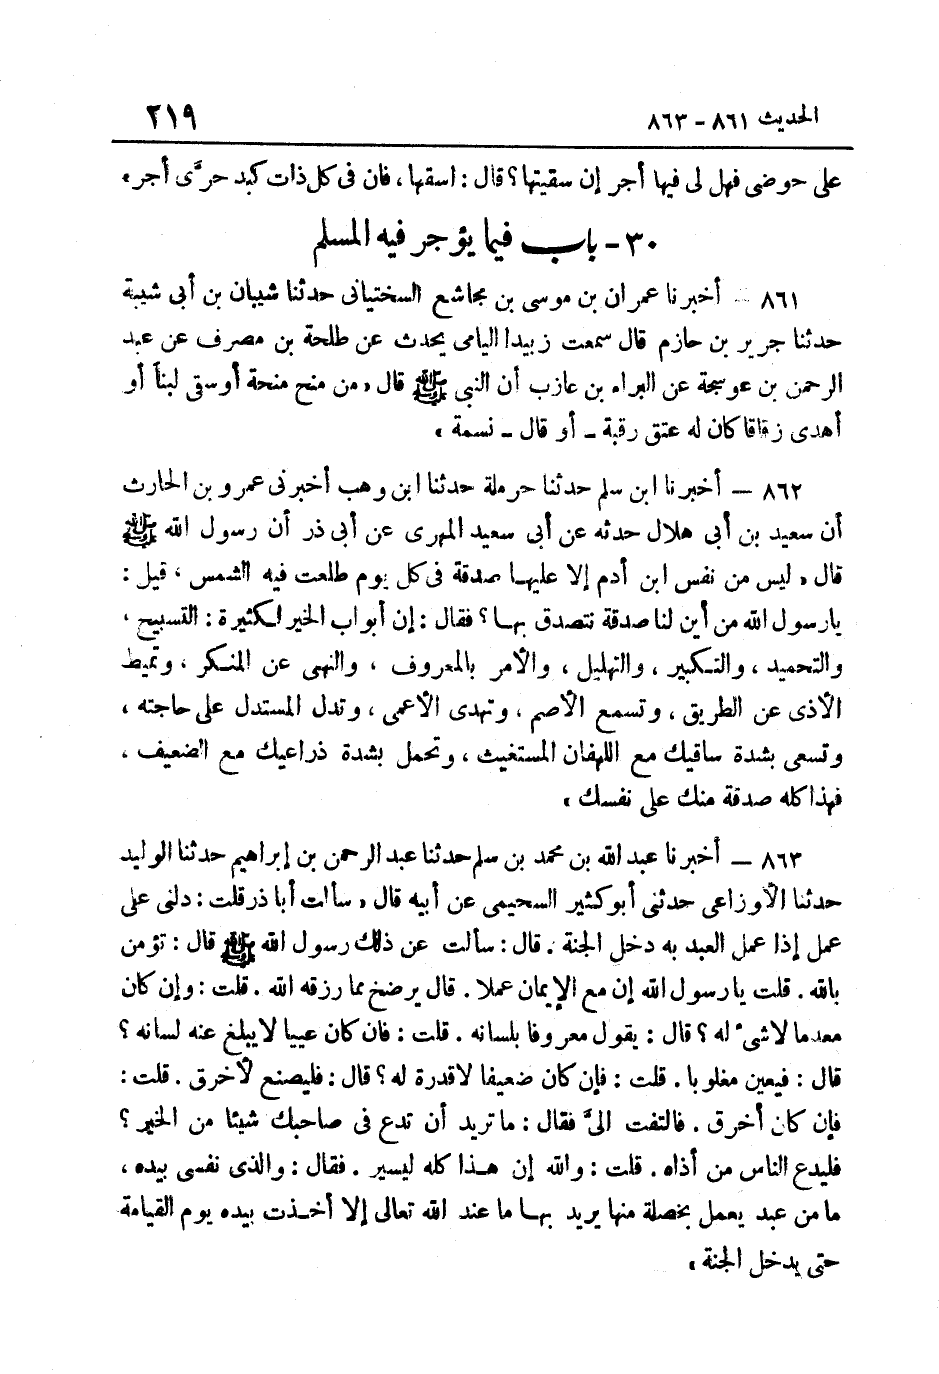 الحديث ٨٦١ - ٨٦٣
٢١٩
على حوضى فهل لى فيها أجر إن سقيتها؟ قال : اسقها ، فان فى كل ذات كبد حرَّى أجر »
٣٠ - باب فيما يؤجر فيه المسلم
٨٦١ – أخبرنا عمران بن موسى بن مجاشع السختيانى حدثنا شيبان بن أبى شيبة
حدثنا جرير بن حازم قال سمعت زبيدا اليامى يحدث عن طلحة بن مصرف عن عبد
الرحمن بن عوسجة عن البراء بن عازب أن النبى ﷺ قال « من منح منحة أوسقى لبناً أو
أهدى زقاقا كان له عتق رقبة ـ أو قال ـ نسمة »
٨٦٢ – أخبرنا ابن سلم حدثنا حرملة حدثنا ابن وهب أخبرنى عمرو بن الحارث
أن سعيد بن أبى هلال حدثه عن أبى سعيد المهرى عن أبى ذر أن رسول الله ﷺ
قال « ليس من نفس ابن أدم إلا عليها صدقة فى كل يوم طلعت فيه الشمس ، قيل :
يارسول الله من أين لنا صدقة نتصدق بها ؟ فقال : إن أبواب الخير لكثيرة : التسبيح ،
والتحميد ، والتكبير ، والتهليل ، والأمر بالمعروف ، والنهى عن المنكر ، وتميط
الأذى عن الطريق ، وتسمع الأصم ، وتهدى الأعمى ، وتدل المستدل على حاجته ،
وتسعى بشدة ساقيك مع اللهفان المستغيث ، وتحمل بشدة ذراعيك مع الضعيف ،
فهذا كله صدقة منك على نفسك »
٨٦٣ – أخبرنا عبد الله بن محمد بن سلم حدثنا عبد الرحمن بن إبراهيم حدثنا الوليد
حدثنا الأوزاعى حدثنى أبو كثير السحيمى عن أبيه قال « سألت أبا ذر قلت : دلنى على
عمل إذا عمل العبد به دخل الجنة . قال : سألت عن ذلك رسول الله ﷺ قال : تؤمن
بالله . قلت يارسول الله إن مع الإيمان عملا . قال يرضخ مما رزقه الله . قلت : وإن كان
معدما لاشىء له ؟ قال : يقول معروفا بلسانه . قلت : فان كان عييا لا يبلغ عنه لسانه ؟
قال : فيعين مغلوبا . قلت : فإن كان ضعيفا لاقدرة له ؟ قال : فليصنع لأخرق . قلت :
فإن كان أخرق . فالتفت الىَّ فقال : ماتريد أن تدع فى صاحبك شيئا من الخير ؟
فليدع الناس من أذاه . قلت : والله إن هذا كله ليسير . فقال : والذى نفسى بيده ،
مامن عبد يعمل بخصلة منها يريد بها ما عند الله تعالى إلا أخذت بيده يوم القيامة
حتى يدخل الجنة »